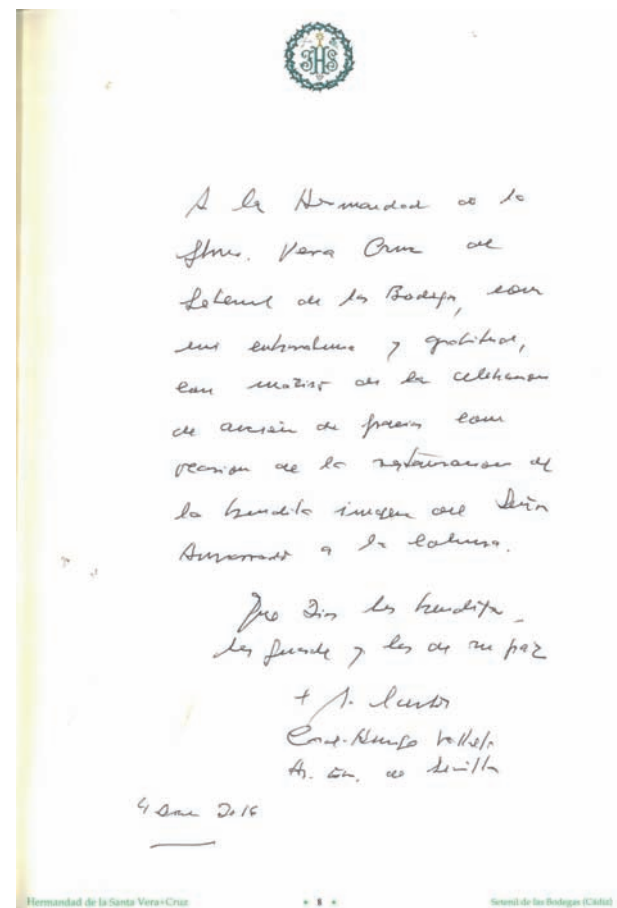 JHS
A la Hermandad de la
Stma. Vera Cruz de
Setenil de las Bodegas, con
mi enhorabuena y gratitud,
con motivo de la celebración
de acción de gracias con
ocasion de la restauracion de
la bendita imagen del Señor
Amarrado a la Columna.
Que Dios les bendiga,
les guarde y les de su paz
+ Carlos
Card. Amigo Vallejo
Ar. Em. de Sevilla
4 2016
Hermandad de la Santa Vera+Cruz • 8 • Setenil de las Bodegas (Cádiz)